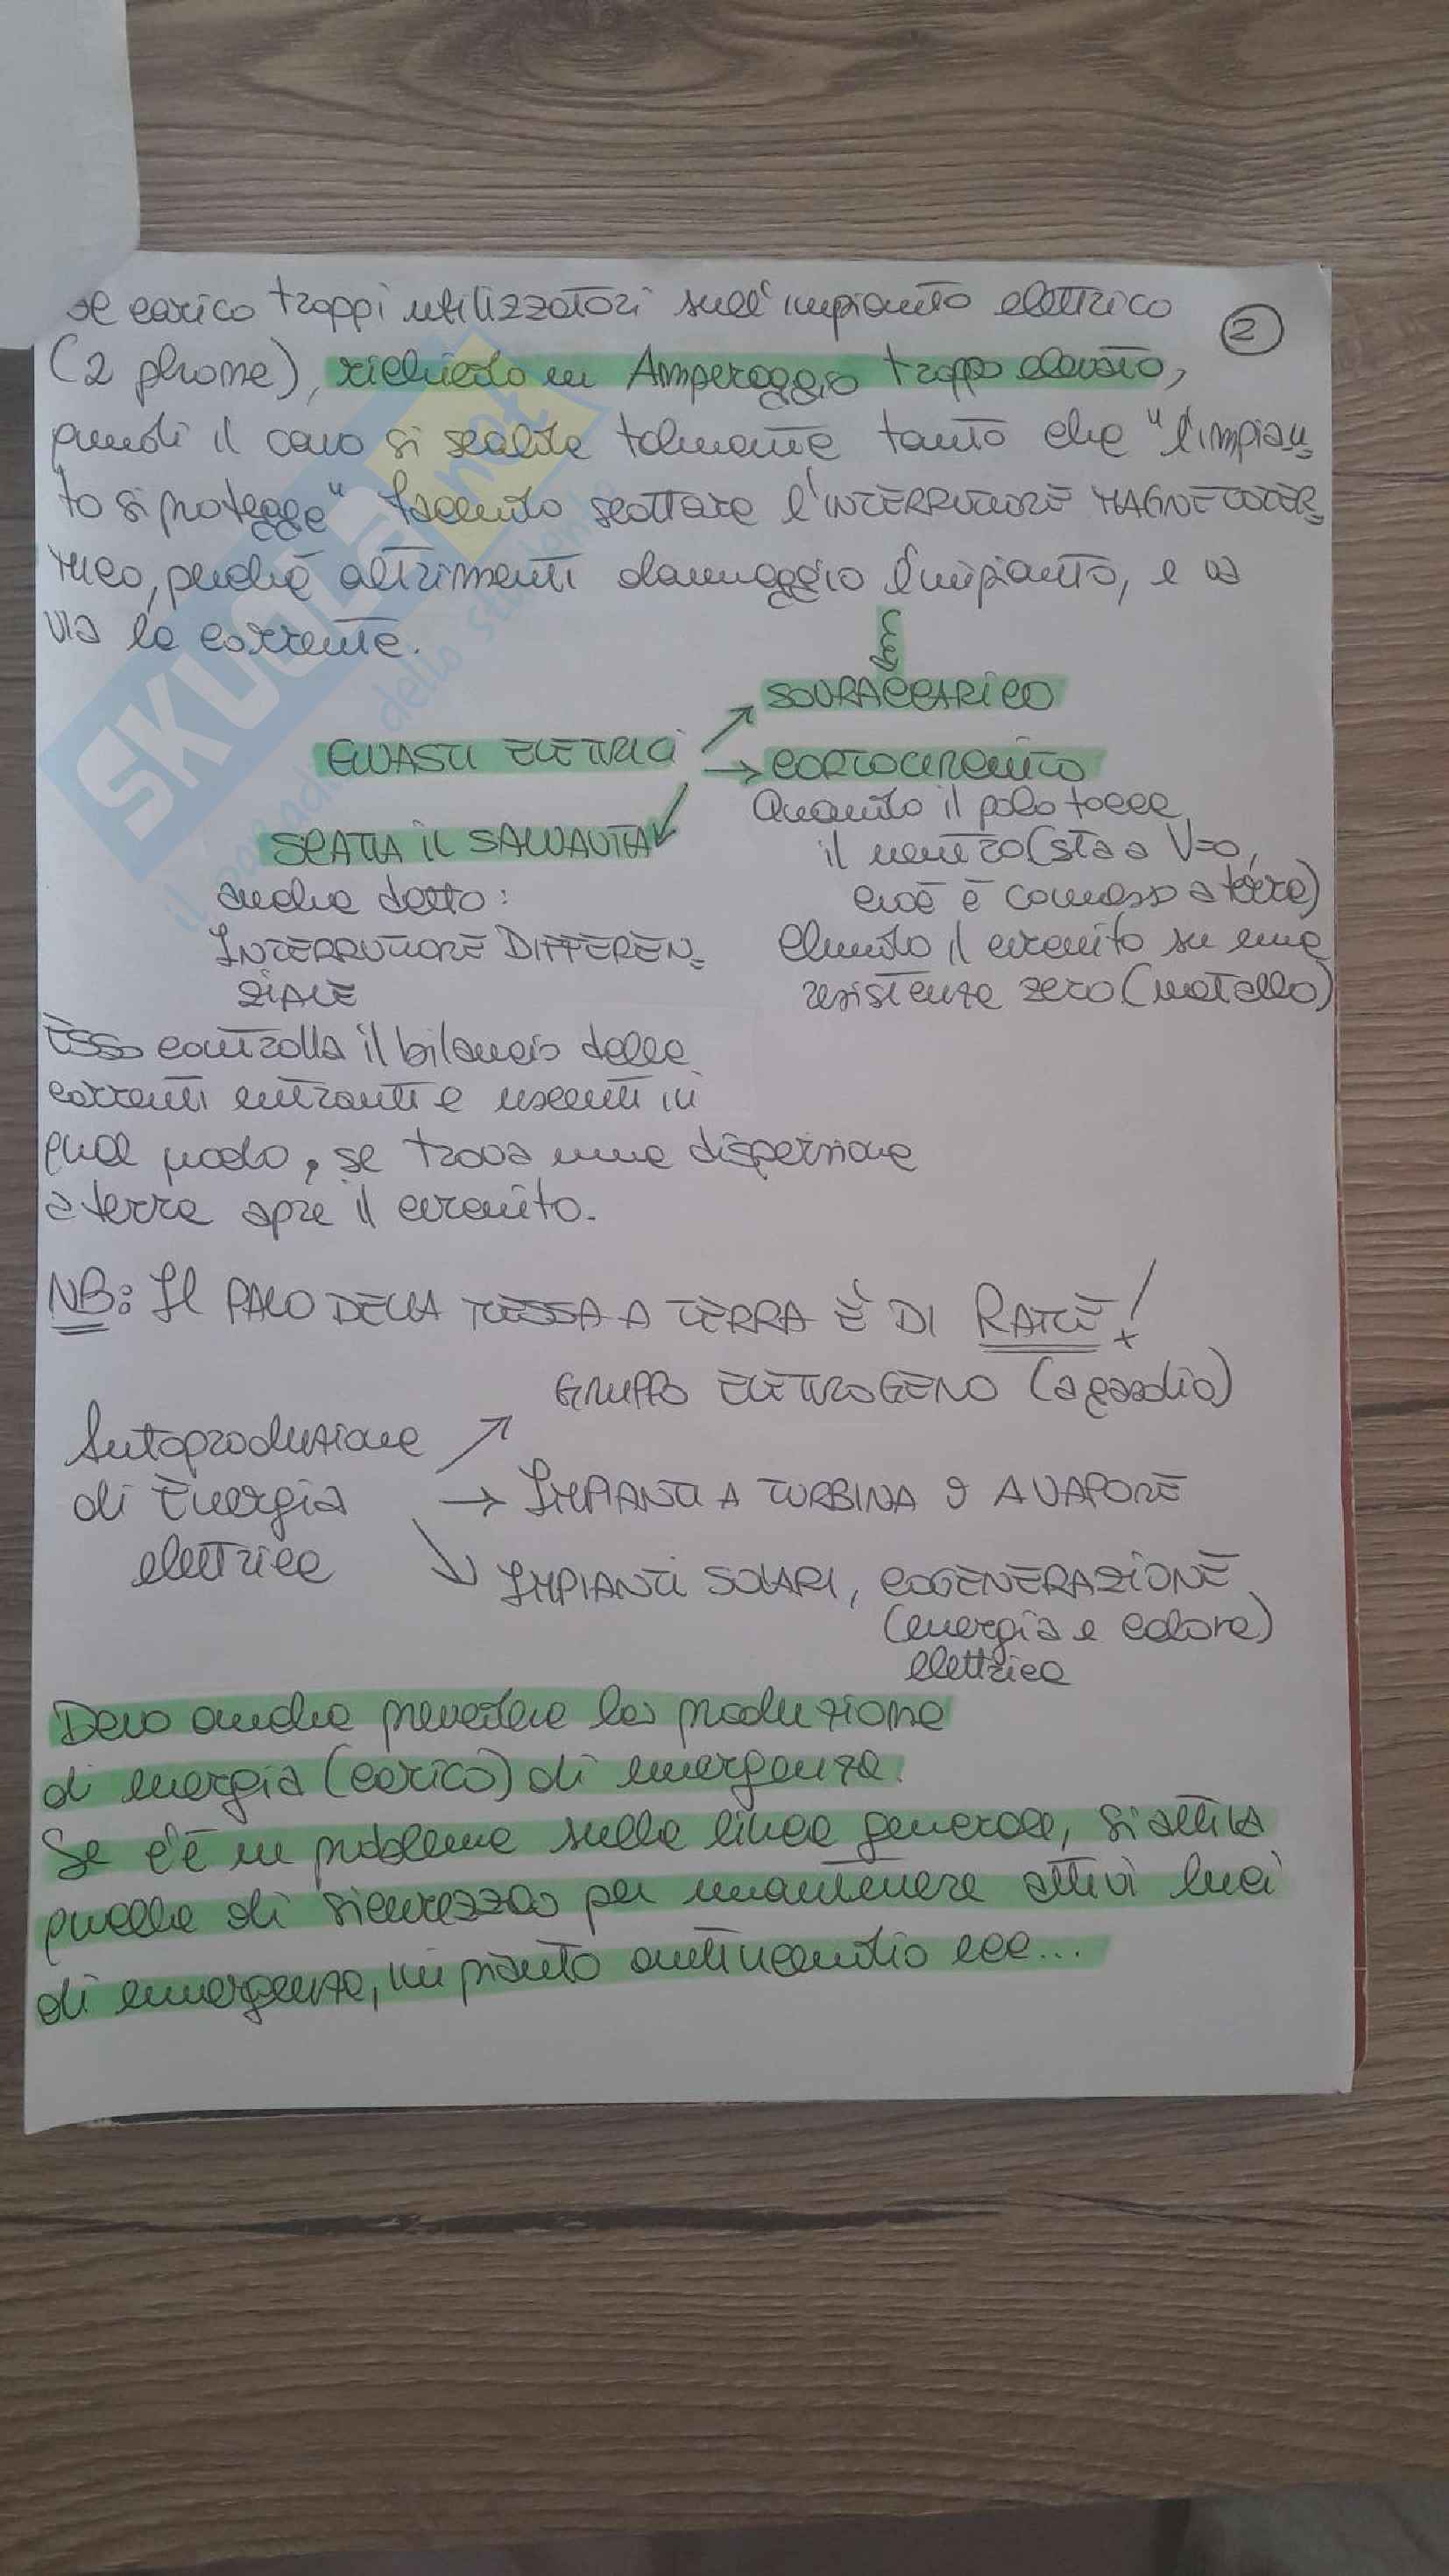 se carico troppi utilizzatori sull'impianto elettrico
2
(2 phone), richiedo un Amperaggio troppo elevato,
quindi il cavo si scalda talmente tanto che "l'impian=
to si protegge" facendo scattare l'INTERRUTTORE MAGNETOTER=
mico, perché altrimenti danneggio l'impianto, e va
via la corrente.
SOVRACCARICO
GUASTI ELETTRICI
CORTOCIRCUITO
Quando il polo tocca
il neutro (sta a V=0,
cioè è connesso a terra)
chiudo il circuito su una
resistenza zero (metallo)
SCATTA IL SALVAVITA
anche detto:
INTERRUTTORE DIFFEREN=
ZIALE
Esso controlla il bilancio delle
correnti entranti e uscenti in
quel nodo, se trova una dispersione
a terra apre il circuito.
NB: Il PALO DELLA MESSA A TERRA È DI RAME!
GRUPPO ELETTROGENO (a gasolio)
Autoproduzione
di Energia
elettrica
IMPIANTI A TURBINA O A VAPORE
IMPIANTI SOLARI, COGENERAZIONE
(energia e calore)
elettrica
Devo anche prevedere la produzione
di energia (carico) di emergenza.
Se c'è un problema sulla linea generale, si attiva
quella di sicurezza per mantenere attivi luci
di emergenza, impianto antincendio ecc...
SKUOLA.net
il paradiso dello studente